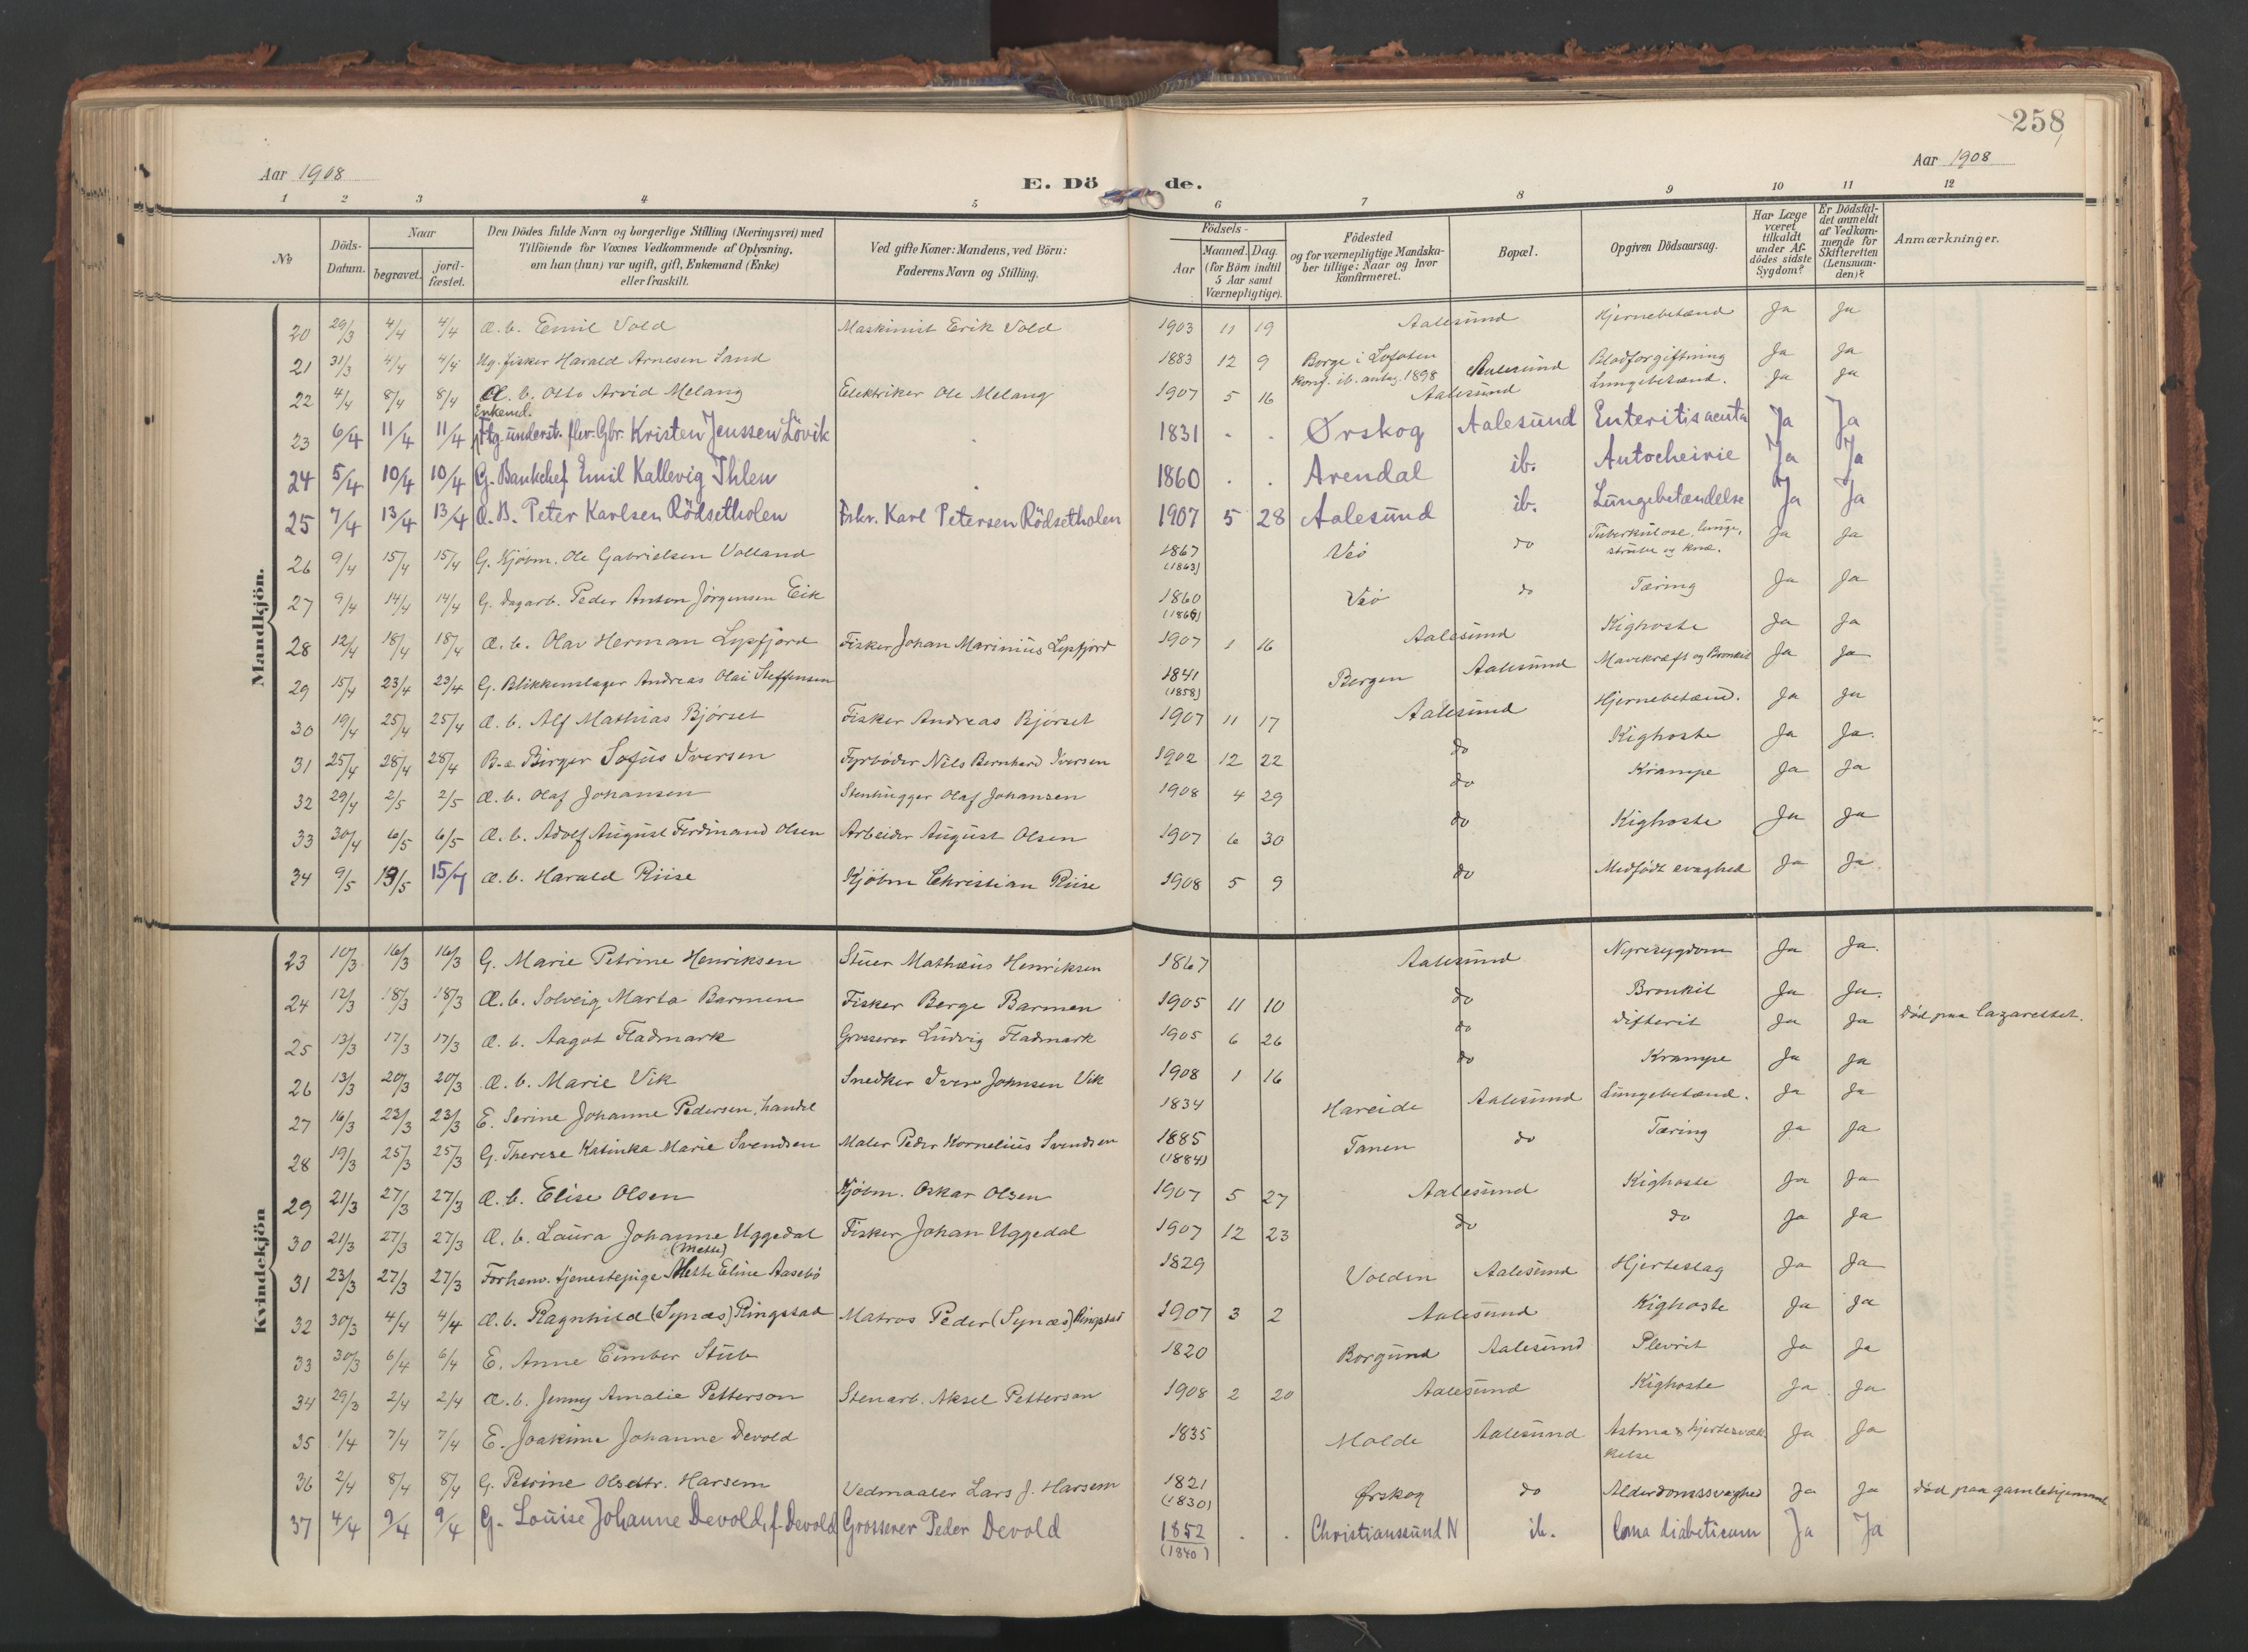 258
Aar 1908
Aar 1908
E. Dö de.
1 2 3 4 5 6 7 8 9 10 11 12
No
Döds-Datum.
Naar
begravet.
jord-fæstet.
Den Dödes fulde Navn og borgerlige Stilling (Næringsvei) med
Tilföiende for Voxnes Vedkommende af Oplysning,
om han (hun) var ugift, gift, Enkemand (Enke)
eller fraskilt.
Ved gifte Koner: Mandens, ved Börn:
Faderens Navn og Stilling.
Födsels-
Aar
Maaned. Dag.
(for Börn indtil
5 Aar samt
Værnepligtige).
Födested
og for værnepligtige Mandska-
ber tillige: Naar og hvor
konfirmeret.
Bopæl.
Opgiven Dödsaarsag.
Har Læge
været
tilkaldt
under Af-
dödes sidste
Sygdom?
Er Dödsfal-
det anmeldt
af Vedkom-
mende for
Skifteretten
(Lensman-
den)?
Anmærkninger.
Mandkjön.
20 29/3 4/4 4/4 Æ. b. Emil Vold Maskinist Erik Vold 1903 11 19 Aalesund Hjernebetænd Ja Ja
21 31/3 4/4 4/4 Ug. fisker Harald Arnesen Sand 1883 12 9 Borge i Lofoten Konf. ib. antag. 1898 Aalesund Blodforgiftning Ja Ja
22 4/4 8/4 8/4 Æ. b. Otto Arvid Melang Elektriker Ole Melang 1907 5 16 Aalesund Lungebetænd. Ja Ja
Enkemd.
23 6/4 11/4 11/4 Ftg. underst. flv. Gbr. Kristen Jenssen Lövik 1831 - - Ørskog Aalesund Enteritis acuta Ja Ja
24 5/4 10/4 10/4 G. Bankchef Emil Kallevig Ihlen 1860 . . Arendal ib. Autocheirie Ja Ja
25 7/4 13/4 13/4 Æ. B. Peter Karlsen Rödsetholen Fskr. Karl Petersen Rödsetholen 1907 5 28 Aalesund ib. Lungebetændelse Ja Ja
26 9/4 15/4 15/4 G. Kjöbm. Ole Gabrielsen Volland 1867 (1863) Veö do Tuberkulose, lunge, strube og knæ. Ja Ja
27 9/4 14/4 14/4 G. Dagarb. Peder Anton Jörgensen Eik 1860 Veö do Tæring Ja Ja
28 12/4 18/4 18/4 Æ. b. Olav Herman Lepsfjord Fisker Johan Marinius Lepsfjord 1907 1 16 Aalesund Kighoste Ja Ja
29 15/4 23/4 23/4 G. Blikkenslager Andreas Olai Steffensen 1841 (1858) Bergen Aalesund Mavekræft og Bronkit Ja Ja
30 19/4 25/4 25/4 Æ. b. Alf Mathias Bjørset Fisker Andreas Bjørset 1907 11 17 Aalesund Hjernebetænd. Ja Ja
31 25/4 28/4 28/4 B. æ Birger Sofus Iversen Fyrbøder Nils Bernhard Iversen 1902 12 22 do Kighoste Ja Ja.
32 29/4 2/5 2/5 Æ. b. Olaf Johansen Stenhugger Olaf Johansen 1908 4 29 do Krampe Ja Ja
33 30/4 6/5 6/5 Æ. b. Adolf August Ferdinand Olsen Arbeider August Olsen 1907 6 30 do Kighoste Ja Ja
34 9/5 13/5 Æ. b. Harald Riise Kjöbm Christian Riise 1908 5 9 do Medfödt svaghed Ja Ja
Kvindekjön
23 10/3 16/3 16/3 G. Marie Petrine Henriksen Stuer Mathæus Henriksen 1867 Aalesund Nyresygdom Ja Ja.
24 12/3 18/3 18/3 Æ. b. Solveig Marta Barmen Fisker Berge Barmen 1905 11 10 do Bronkit Ja Ja.
25 13/3 17/3 17/3 Æ. b. Aagot Fladmark Grosserer Ludvig Fladmark 1905 6 26 do Difterit Ja Ja Död paa lazarettet.
26 13/3 20/3 20/3 Æ. b. Marie Vik Snedker Iver Johnsen Vik 1908 1 16 do Krampe Ja Ja
27 16/3 23/3 23/3 E. Serine Johanne Pedersen, handel 1834 Hareide Aalesund Lungebetænd. Ja Ja
28 19/3 25/3 25/3 G. Therese Katinka Marie Svendsen Maler Peder Kornelius Svendsen 1885 (1884) Tanen do Tæring Ja Ja
29 21/3 27/3 27/3 Æ. b. Elise Olsen Kjöbm. Oskar Olsen 1907 5 27 Aalesund Kighoste Ja Ja
30 21/3 27/3 27/3 Æ. b. Laura Johanne Uggedal Fisker Johan Uggedal 1907 12 23 do do Ja Ja
(Mette)
31 23/3 27/3 27/3 Forhenv. tjenestepige Mette Eline Aasebö 1829 Volden Aalesund Hjerteslag Ja Ja
32 30/3 4/4 4/4 Æ. b. Ragnhild (Synæs) Ringstad Matros Peder (Synæs) Ringstad 1907 3 2 Aalesund Kighoste Ja Ja
33 30/3 6/4 6/4 E. Anne Cimber Stub 1820 Borgund Aalesund Plevrit Ja Ja
34 29/3 2/4 2/4 Æ. b. Jenny Amalie Petterson Stenarb. Aksel Petterson 1908 2 20 Aalesund Kighoste Ja Ja
35 1/4 7/4 7/4 E. Joakime Johanne Devold 1835 Molde Aalesund Astma & hjertesvæk-kelse Ja Ja
36 2/4 8/4 8/4 G. Petrine Olsdtr. Harsem Vedmaaler Lars J. Harsem 1821 (1830) Ørskog do Alderdomssvaghed Ja Ja Död paa gamlehjemmet
37 4/4 9/4 9/4 G. Louise Johanne Devold, f. Devold Grosserer Peder Devold 1852 (1840) . . Christianssund N ib. Coma diabeticum Ja Ja